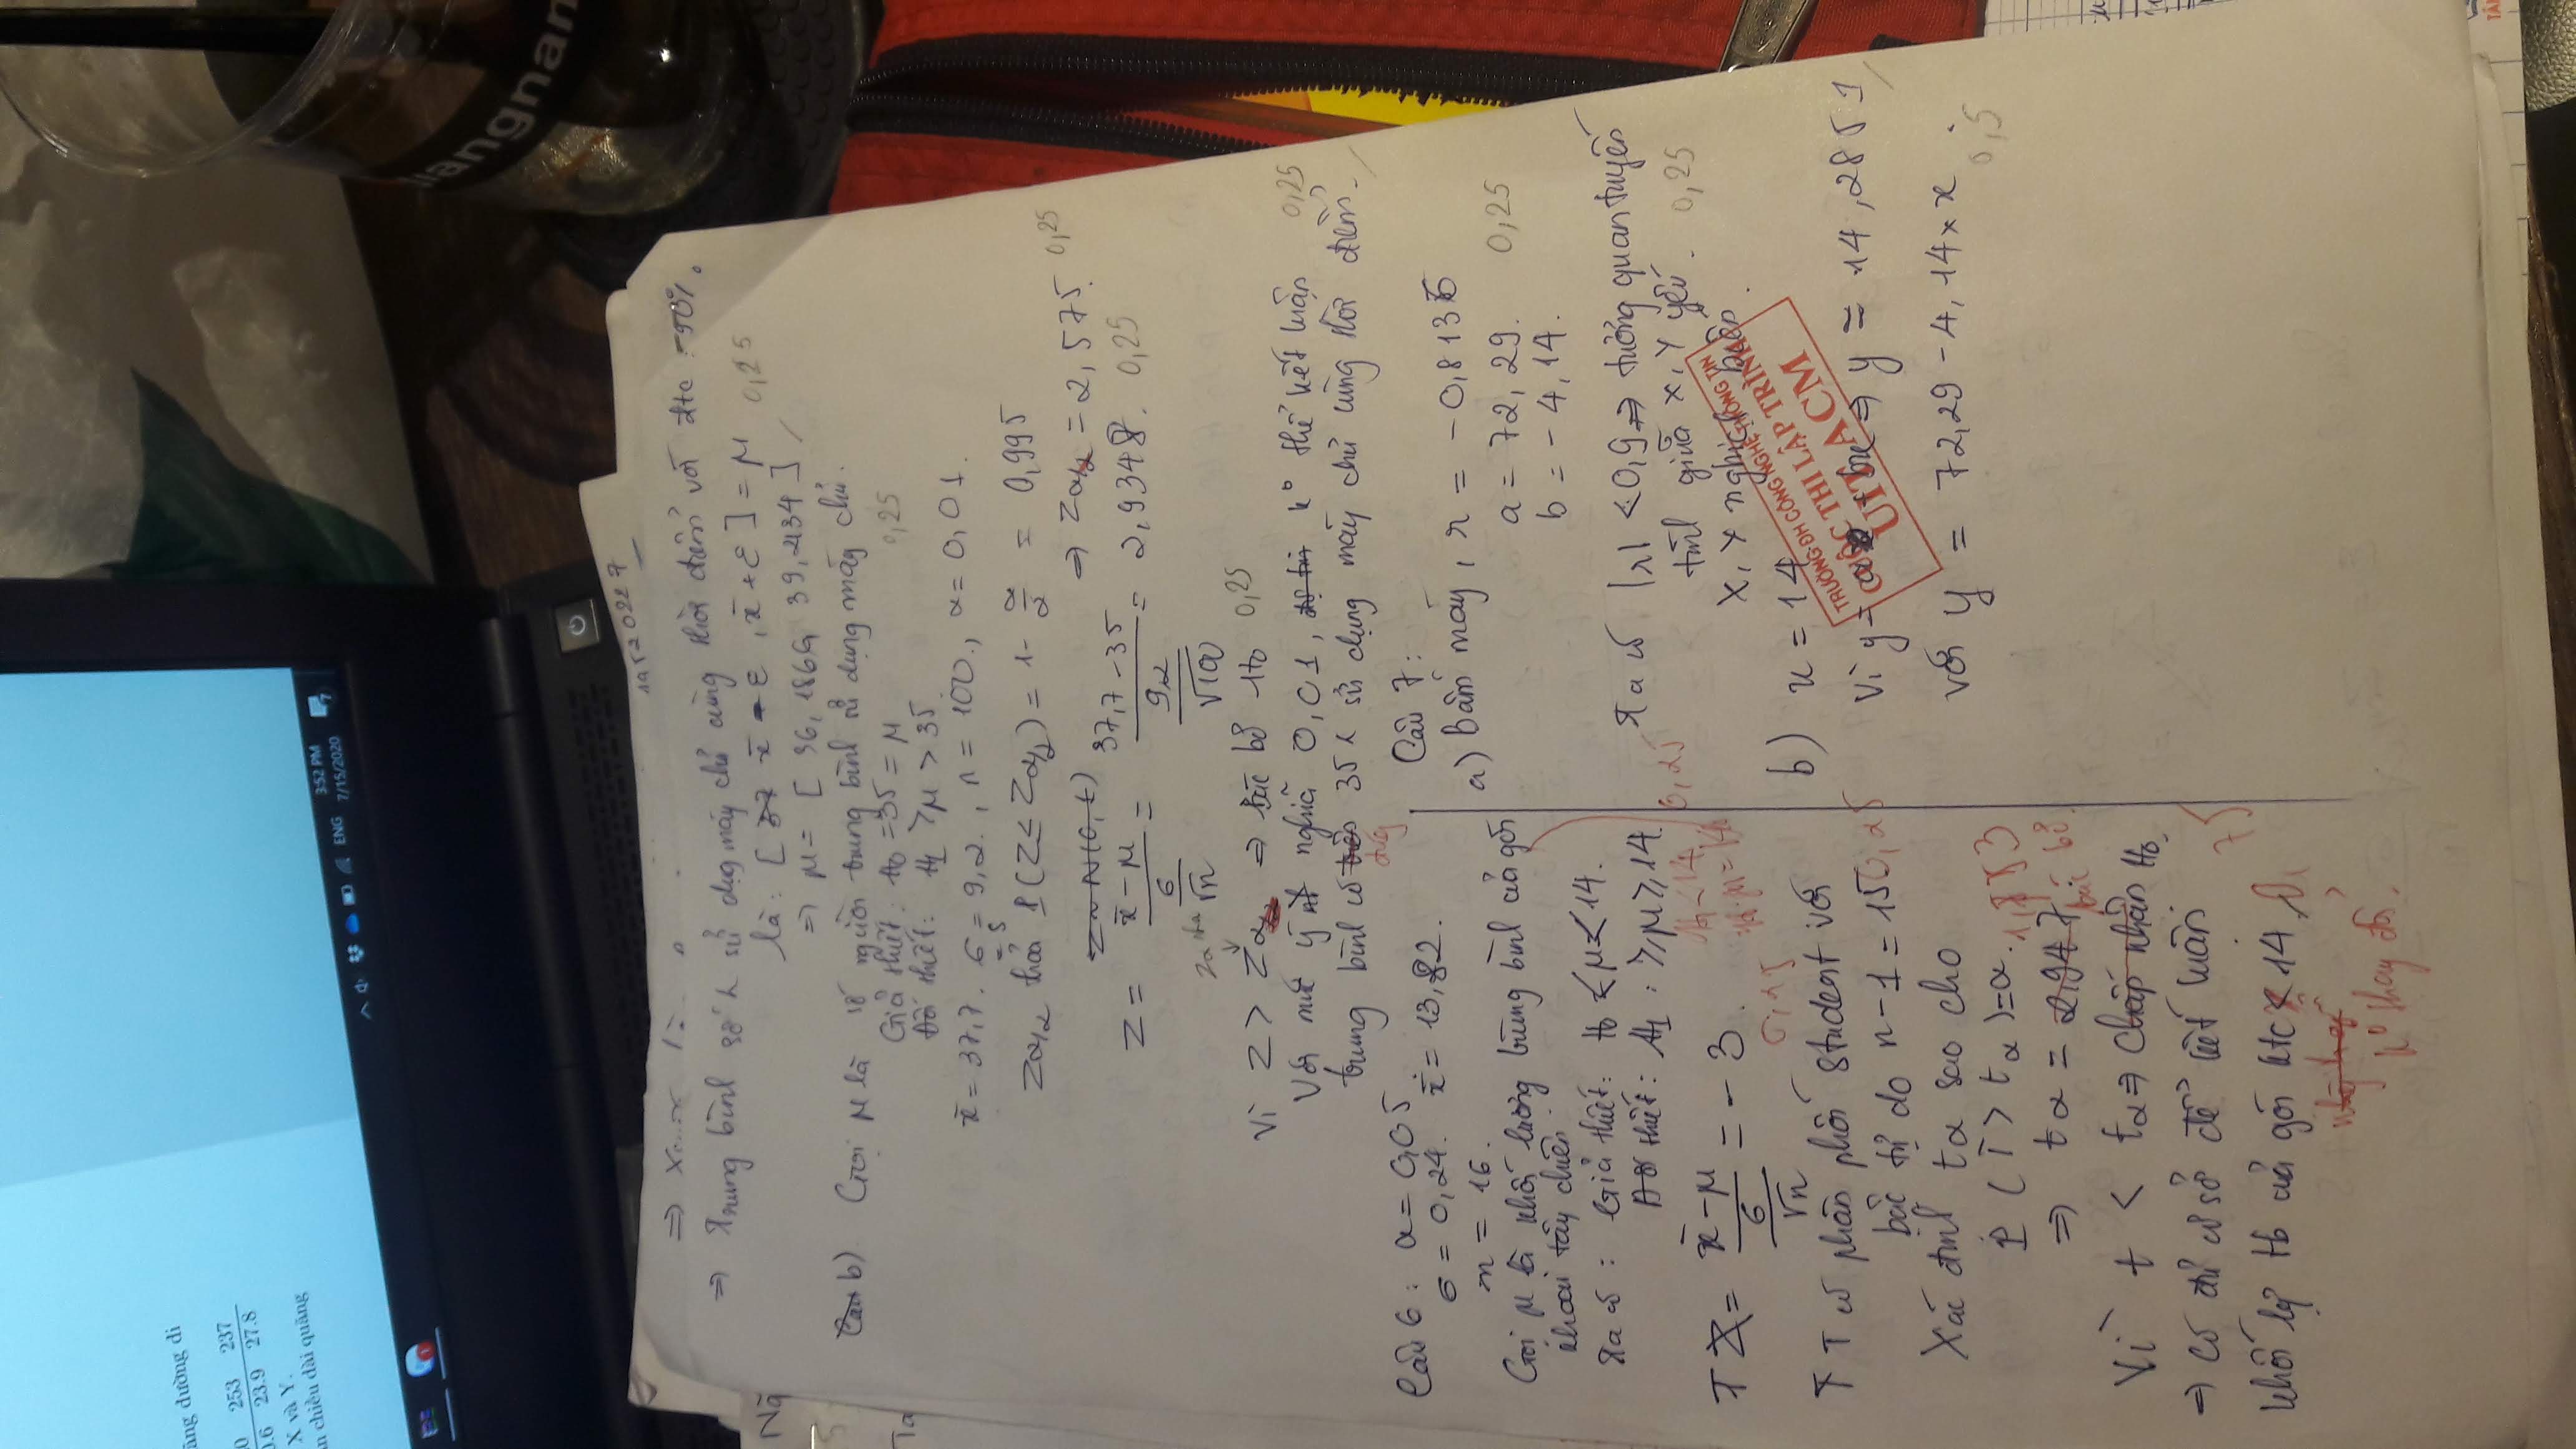 đường đi
253 237
23.9 27.8
X và Y.
chiều dài quãng
3:52 PM
ENG
7/15/2020
7
1
angnam
19520227
=> Trung bình số sử dụg máy chủ cùng thời điểm với đtc 90%.
là: [ x̄ - ε , x̄ + ε ] = μ 0,25
=> μ = [ 36,1866, 39,2134 ]
b) Gọi μ là số người trung bình sử dụng máy chủ.
Giả thiết: H₀ = 35 = μ 0,25
Đối thiết: H₁ > μ > 35
x̄ = 37,7. σ = 9,2., n = 100., α = 0,01.
= s
Zα/2 thỏa P(Z ≤ Zα/2) = 1 - α/2 = 0,995
=> Zα/2 = 2,575. 0,25
Z ~ N(0,1)
Z = (x̄ - μ)/(σ/√n) = (37,7 - 35)/(9,2/√100) = 2,9348. 0,25
Vì Z > Zα/2 => Bác bỏ H₀ 0,25
Với mức ý nghĩa 0,01, k° thể kết luận 0,25
trung bình có 35 sử dụng máy chủ cùng thời điểm.
Câu 6: α = 0,05.
σ = 0,24. x̄ = 13,82.
n = 16.
Gọi μ là khối lượng trung bình của gói
khoai tây chiên
Ta có: Giả thiết: H₀ ≤ μ ≤ 14.
Đối thiết: H₁ : ≥ μ ≥ 14.
0,25
T = (x̄ - μ)/(σ/√n) = -3.
T có phân phối student với
bậc tự do n - 1 = 15 0,25
Xác định tα sao cho
P (T > tα) = α.
1,753
=> tα = 2,947
bác bỏ
Vì t < tα => Chấp nhận H₀
=> Có đủ cơ sở để kết luận
khối lg tb của gói ktc < 14
75
k° thay đổi.
Câu 7:
a) Bấm máy, r = -0,8136
a = 72,29. 0,25
b = -4,14.
Ta có |r| < 0,9 => tương quan tuyến
tính giữa X, Y yếu. 0,25
X, Y nghịch biến.
b) x = 14
TRƯỜNG ĐH CÔNG NGHỆ THÔNG TIN
CUỘC THI LẬP TRÌNH
UIT ACM
Vì y = a + bx => y = 14,2851
với y = 72,29 - 4,14 × x.
0,5